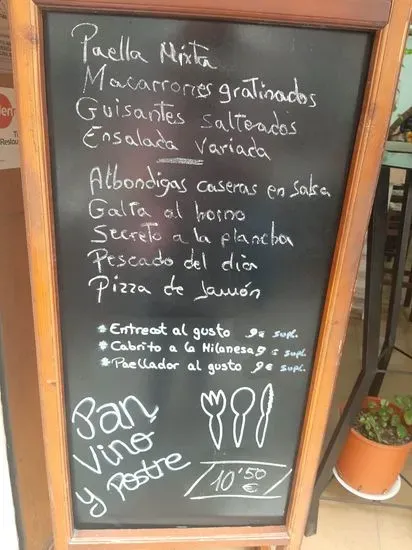 Paella Mixta
Macarrones gratinados
Guisantes salteados
Ensalada variada
Albondigas caseras en salsa
Galta al horno
Secreto a la plancha
Pescado del dia
Pizza de Jamón
* Entrecot al gusto 9€ supl.
* Cabrito a la Milanesa 9€ supl.
* Paellador al gusto 9€ supl.
Pan
Vino
y Postre
10'50
€